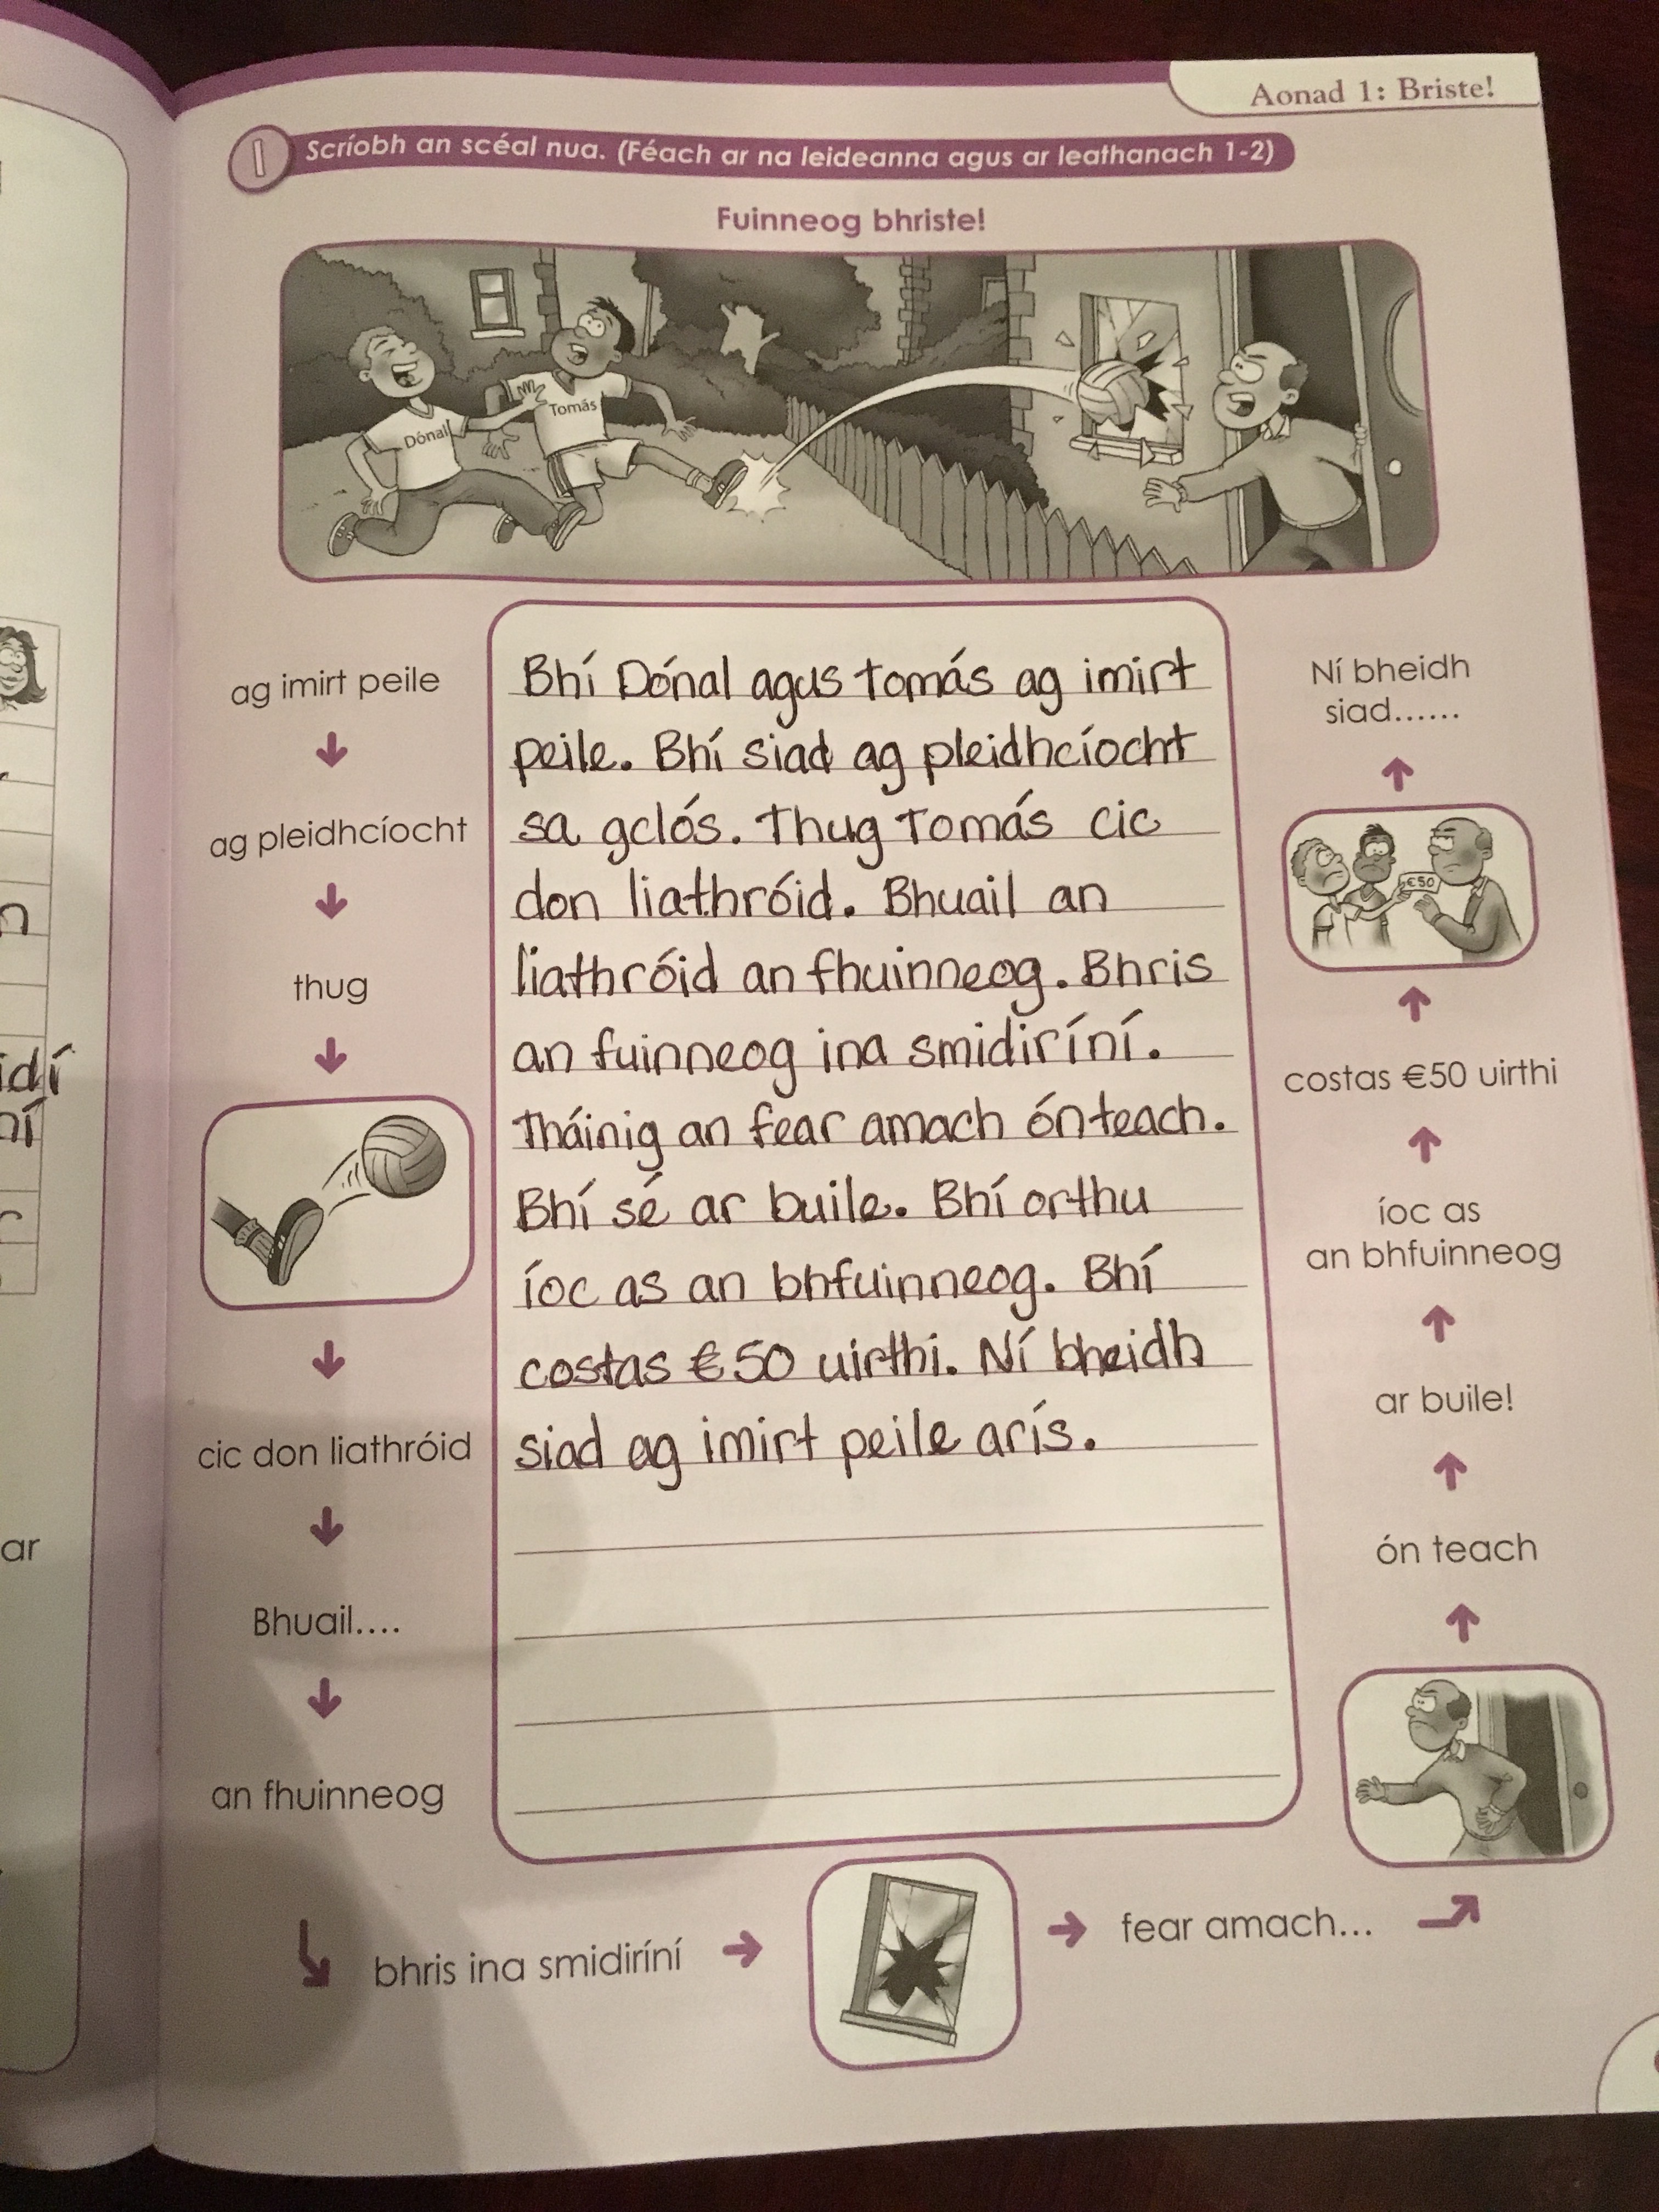 Aonad 1: Briste!
I Scríobh an scéal nua. (Féach ar na leideanna agus ar leathanach 1-2)
Fuinneog bhriste!
Dónal
Tomás
ag imirt peile
ag pleidhcíocht
thug
cic don liathróid
Bhuail....
an fhuinneog
bhris ina smidiríní
fear amach...
ón teach
ar buile!
íoc as
an bhfuinneog
costas €50 uirthi
€50
Ní bheidh
siad......
Bhí Dónal agus Tomás ag imirt
peile. Bhí siad ag pleidhcíocht
sa gclós. Thug Tomás cic
don liathróid. Bhuail an
liathróid an fhuinneog. Bhris
an fuinneog ina smidiríní.
Tháinig an fear amach ón teach.
Bhí sé ar buile. Bhí orthu
íoc as an bhfuinneog. Bhí
costas €50 uirthi. Ní bheidh
siad ag imirt peile arís.
idí
ní
ar